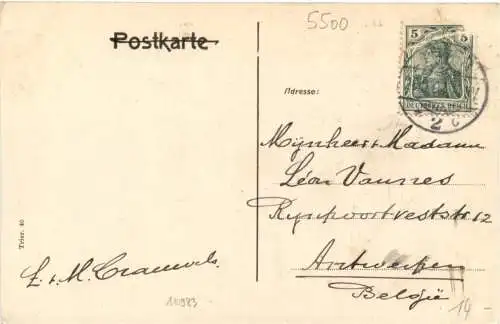 5500
Postkarte
5
DEUTSCHES REICH
2 c
Adresse:
Mijnheer + Madame
Léon
Rijnpoortveststr 12
Antwerpen
Belgie
Trier. 40
L. + M.
110983
14 -